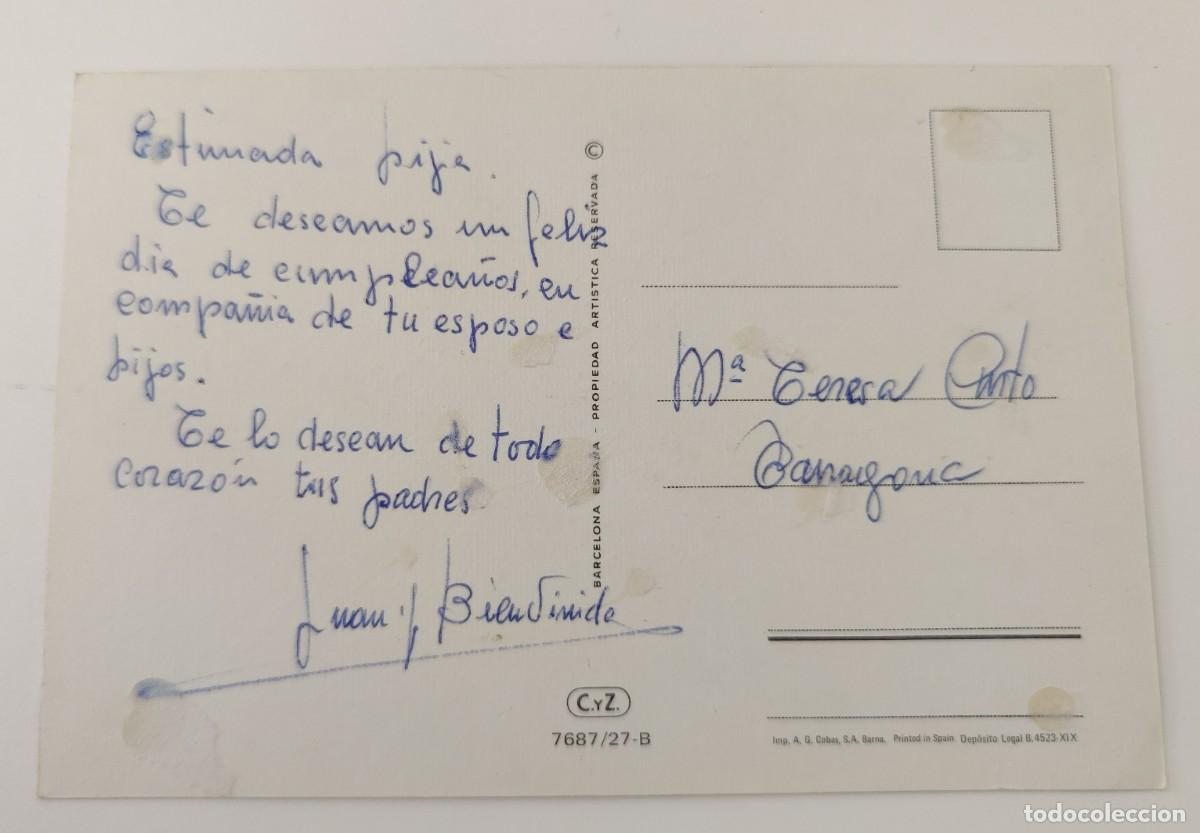 Estimada hija.
Te deseamos un feliz
dia de cumpleaños, en
compañia de tu esposo e
hijos.
Te lo desean de todo
corazón tus padres
Juan y Bienvenida
BARCELONA ESPAÑA - PROPIEDAD ARTISTICA RESERVADA ©
Mª Teresa
Tarragona
C.YZ.
7687/27-B
Imp. A. G. Cobas, S.A. Barna. Printed in Spain Depósito Legal B. 4523-XIX
todocoleccion